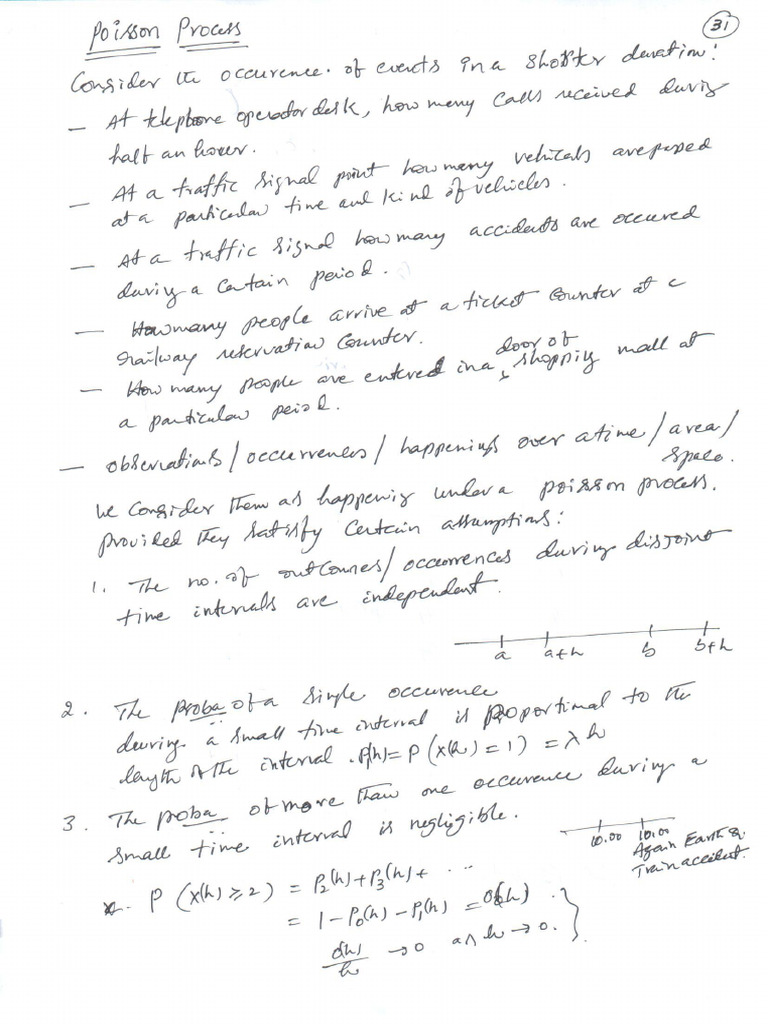 31
Poisson Process
Consider the occurence. of events in a shorter duration!
- At telephone operator desk, how many calls received during
half an hour.
- At a traffic signal point how many vehicals are passed
at a particular time and kind of vehicles.
- At a traffic signal how many accidents are occured
during a certain period.
- How many people arrive at a ticket counter at a
railway reservation counter.
- How many people are entered in a door of shopping mall at
a particular peiod.
- observations/occurrences/happenings over a time/area/
space.
We consider them as happening under a poisson process.
provided they satisfy certain assumptions:
1. The no. of outcomes/occurrences during disjoint
time intervals are independent.
a a+h b b+h
2. The proba of a single occurence
during a small time interval is proportional to the
length of the interval. P₁(h) = P(X(h) = 1) = λh
3. The proba of more than one occurence during a
small time interval is negligible.
10.00 10.00
Again Earth Q.
Train accident.
P(X(h) ≥ 2) = P₂(h) + P₃(h) + ...
= 1 - P₀(h) - P₁(h) = O(h).
O(h)/h → 0 as h → 0.